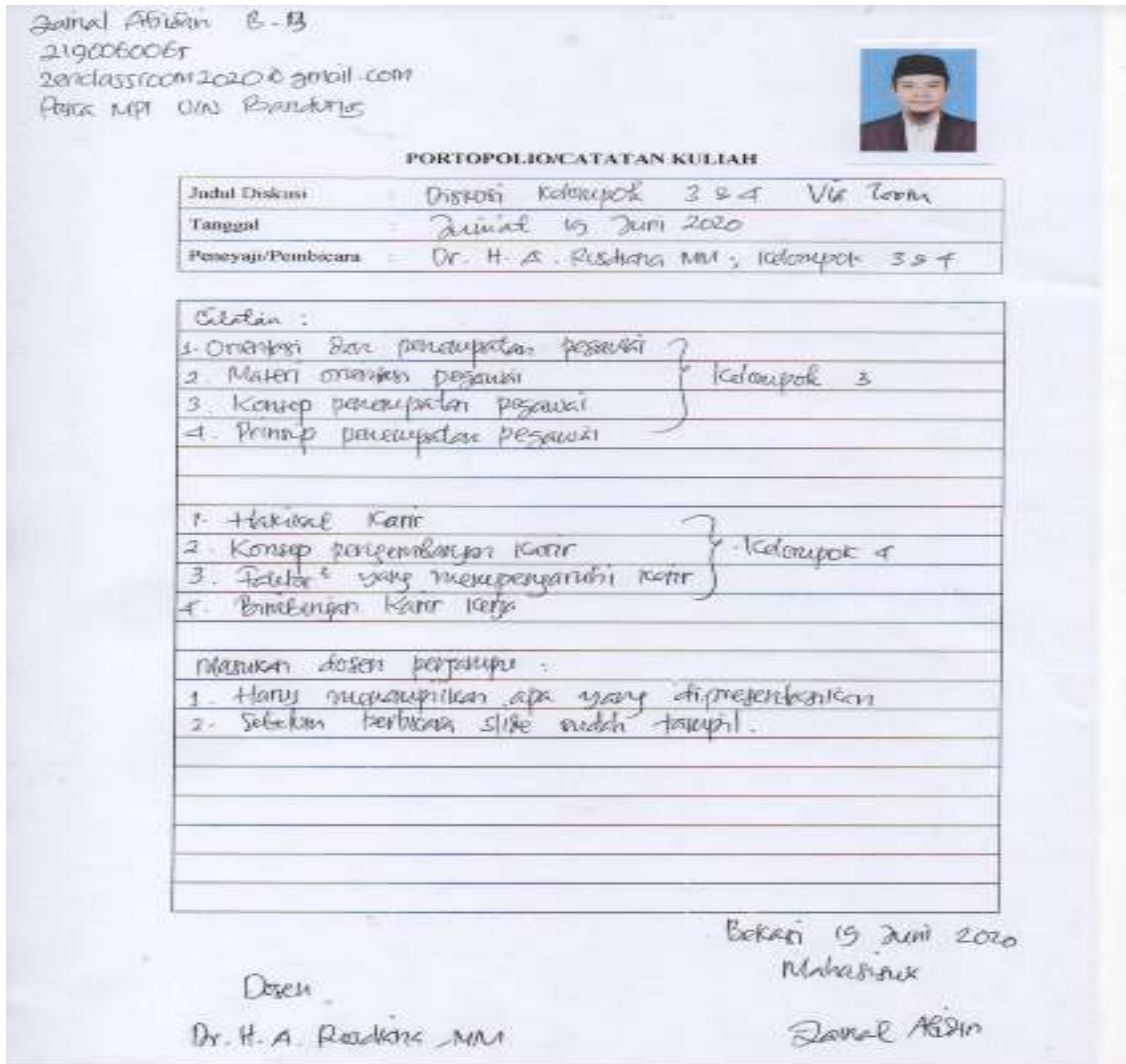 Zainal Abidin B-13
2190060065
zenclassroom2020@gmail.com
Pasca MPI UIN Bandung
PORTOPOLIO/CATATAN KULIAH
Judul Diskusi : Diskusi Kelompok 3 & 4 Via Zoom
Tanggal : Jumat 19 Juni 2020
Penyaji/Pembicara : Dr. H. A. Rusdiana MM ; Kelompok 3 & 4
Catatan :
1. Orientasi dan penempatan pegawai
2. Materi orientasi pegawai
Kelompok 3
3. Konsep penempatan pegawai
4. Prinsip penempatan pegawai
1. Hakikat Karir
2. Konsep pengembangan Karir
Kelompok 4
3. Faktor² yang mempengaruhi Karir
4. Bimbingan Karir Kerja
Masukan dosen :
1. Harus menampilkan apa yang dipresentasikan
2. Sebelum berbicara slide sudah tampil.
Bekasi 19 Juni 2020
Mahasiswa
Dosen
Dr. H. A. Rusdiana MM
Zainal Abidin